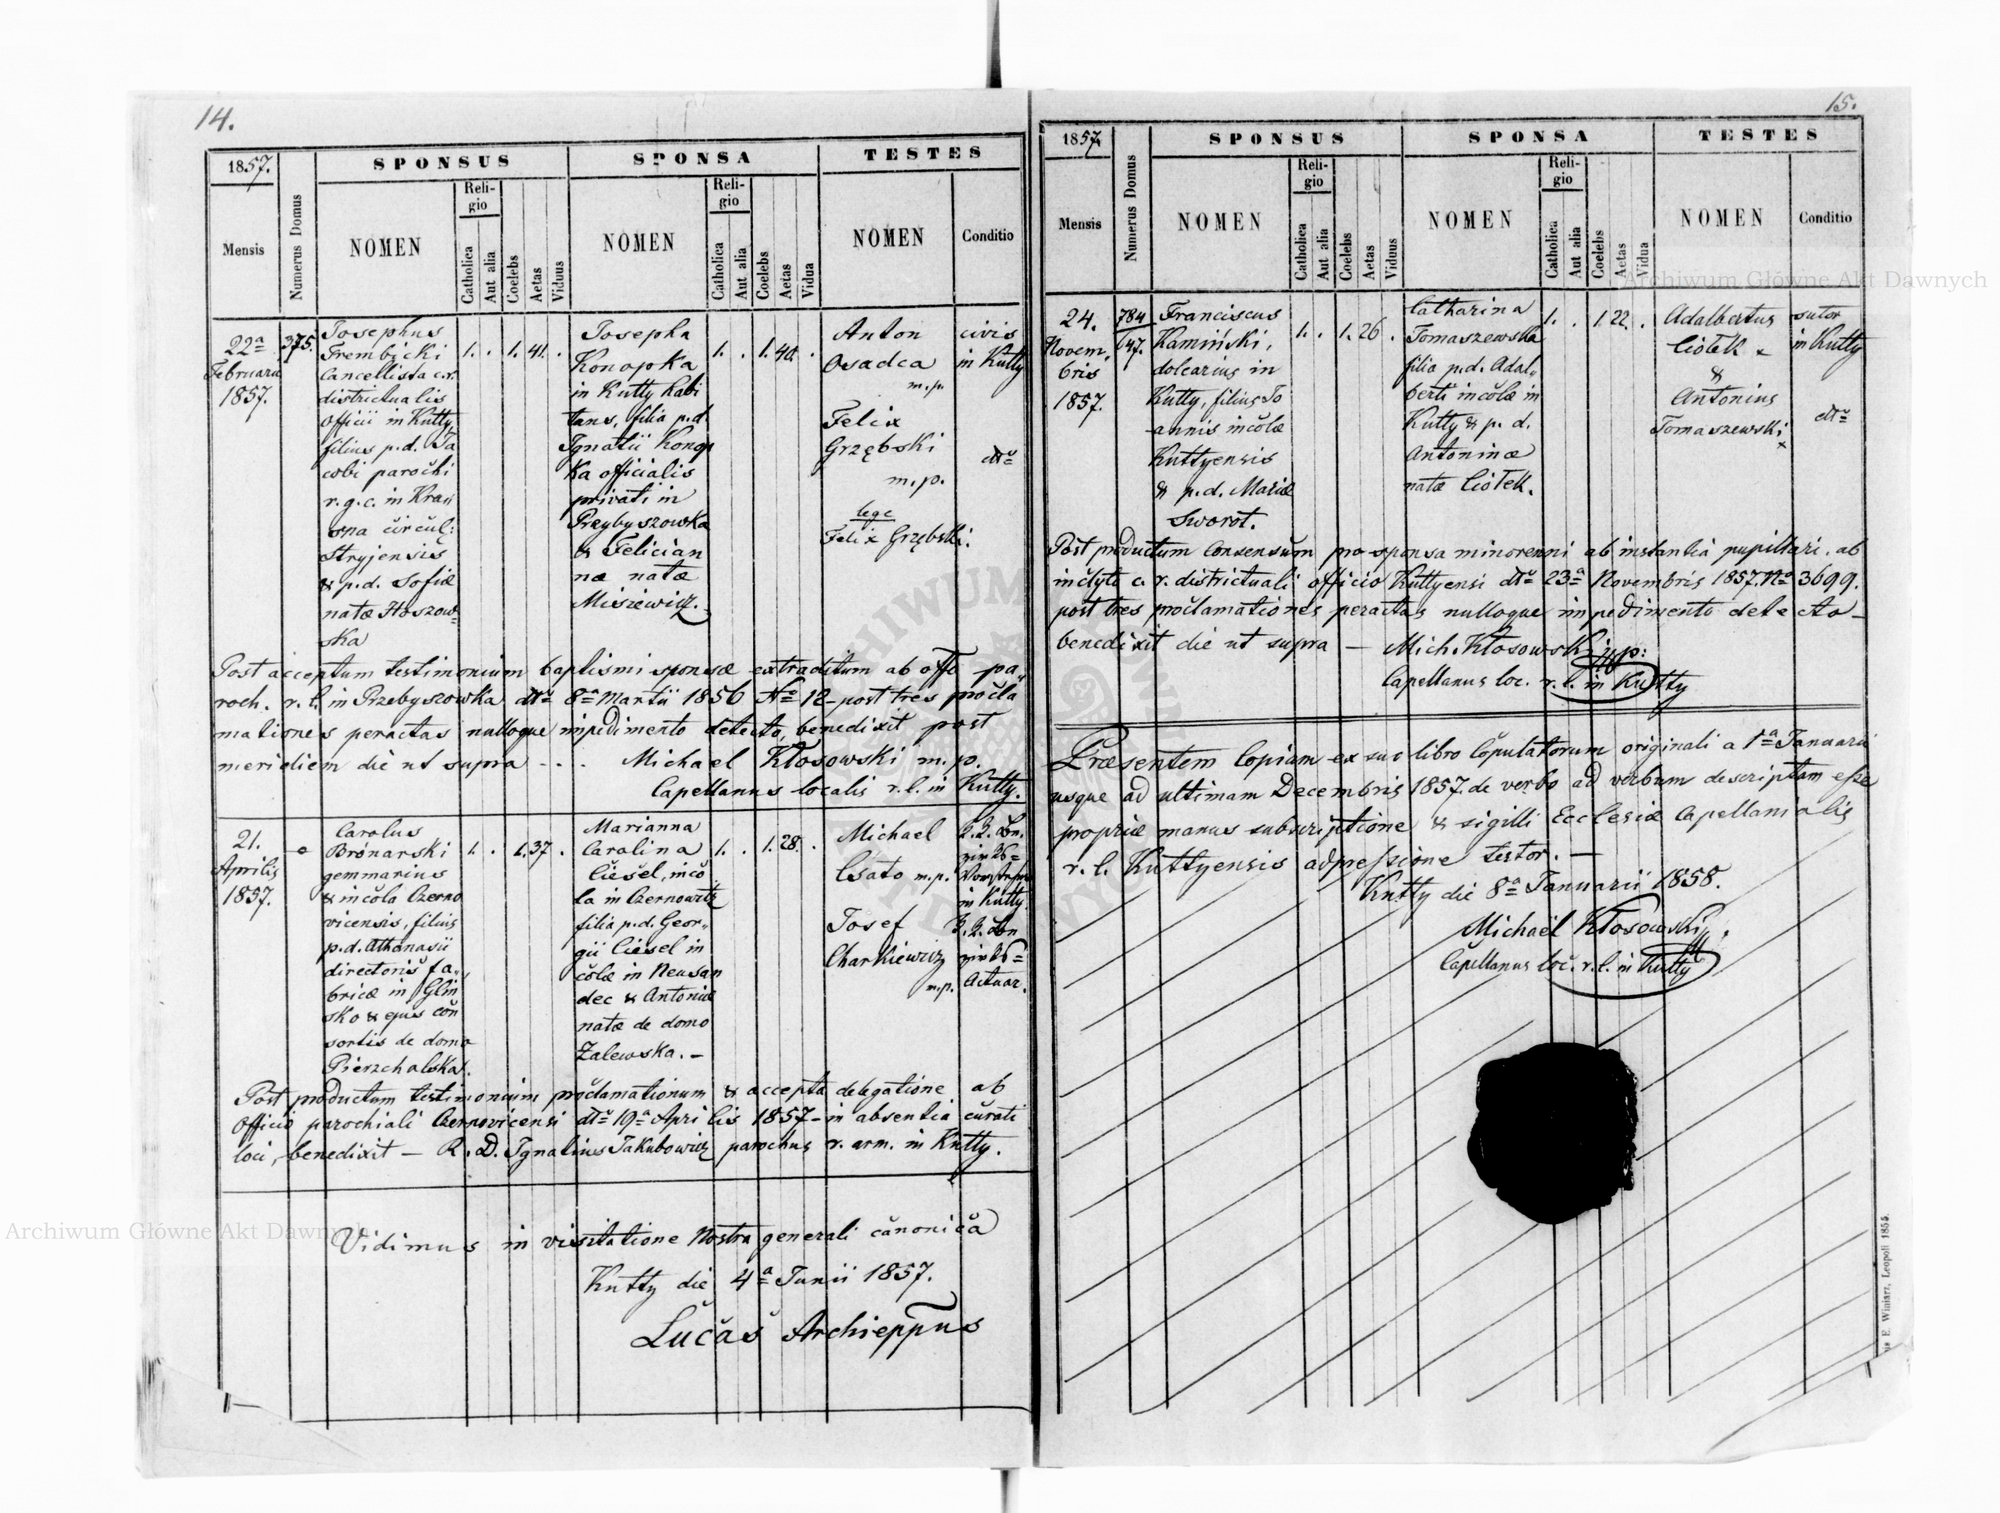 14.
1857.
SPONSUS
SPONSA
TESTES
Mensis
Numerus Domus
NOMEN
Religio
Catholica
Aut alia
Coelebs
Aetas
Viduus
NOMEN
Religio
Catholica
Aut alia
Coelebs
Aetas
Vidua
NOMEN
Conditio
22a
Februarii
1857.
375.
Josephus
Trembicki
Cancellista c.r.
districtualis
officii in Kutty,
filius p.d. Ja
cobi parochi
r.g.c. in Kras
sna circul:
Stryjensis
& p.d. Sofiæ
natæ Hoszow=
ska
1. . 1. 41. .
Josepha
Konopka
in Kutty habi
tans, filia p.d.
Ignatii Konop
ka officialis
privati in
Przybyszowka
& Felician
næ natæ
Misiewicz.
1. . 1. 40. .
Anton
Osadca
m.p.
Felix
Grzębski
m.p.
lege
Felix Grzębski.
civis
in Kutty
dto
Post acceptum testimonium baptismi sponsæ extraditum ab offo pa„
roch. r.l. in Przebyszowka dto 8a Martii 1856 No 12 – post tres procla
mationes peractas nulloque impedimento detecto, benedixit post
meridiem die ut supra - . . Michael Kłosowski m.p.
Capellanus localis r.l. in Kutty.
21.
Aprilis
1857.
Carolus
Brónarski
gemmarius
& incola Czerno
vicensis, filius
p.d. Athanasii
directoris fa„
bricæ in Glin
sko & ejus con
sortis de domo
Pierzchalska.
1. . 1. 37 .
Marianna
Carolina
Ciesel, inco
la in Czernowitz
filia p.d. Geor„
gii Ciesel in
colæ in Neusan
dec & Antoniæ
natæ de domo
Zalewska. –
1. . 1. 28. .
Michael
Csato m.p.
Josef
Charkiewicz
m.p.
in Kutty
Actuar.
Post productum testimonium proclamationum & accepta delegatione ab
officio parochiali Czernovicensi dto 19a Aprilis 1857 – in absentia curati
loci, benedixit — R. D. Ignatius Jakubowicz parochus r. arm. in Kutty.
Vidimus in visitatione Nostra generali canonica
Kutty die 4a Junii 1857.
Lucas Archieppus
15.
1857.
SPONSUS
SPONSA
TESTES
Mensis
Numerus Domus
NOMEN
Religio
Catholica
Aut alia
Coelebs
Aetas
Viduus
NOMEN
Religio
Catholica
Aut alia
Coelebs
Aetas
Vidua
NOMEN
Conditio
24.
Novem„
bris
1857.
784
147.
Franciscus
Kamiński,
dolearius in
Kutty, filius Jo
annis incolæ
Kuttyensis
& p.d. Mariæ
Sworot.
1. . 1. 26 .
Catharina
Tomaszewska
filia p.d. Adal„
berti incolæ in
Kutty & p. d.
Antoninæ
natæ Ciołek.
1. . 1. 22. .
Adalbertus
Ciołek x
&
Antonius
Tomaszewski
x
sutor
in Kutty
dto
Post productum consensum pro sponsa minorenni ab instantia pupillari . ab
inclyto c. r. districtuali officio Kuttyensi dto 23a Novembris 1857. No 3699.
post tres proclamationes peractas nulloque impedimento detecto –
benedixit die ut supra — Mich. Kłosowski mp:
Capellanus loc. r. l. in Kutty
Præsentem Copiam ex suo libro Copulatorum originali a 1a Januarii
usque ad ultimam Decembris 1857. de verbo ad verbum descriptam esse
propriæ manus subscriptione & sigilli Ecclesiæ Capellanalis
r. l. Kuttyensis adpressione testor. —
Kutty die 8a Januarii 1858.
Michael Kłosowski,
Capellanus loc. r. l. in Kutty
E. Winiarz, Leopoli 1855.
Archiwum Główne Akt Dawnych
Archiwum Główne Akt Dawnych